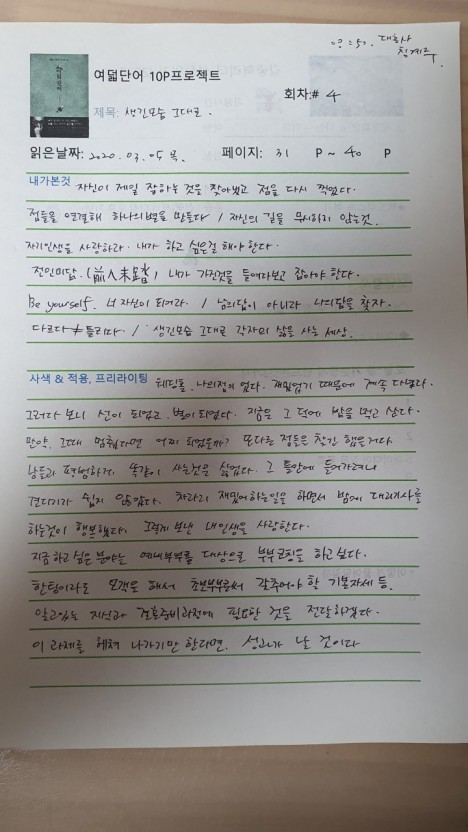 여덟단어 10P프로젝트
회차:# 4
제목: 생긴모습 그대로.
읽은날짜: 2020. 03. 05 목. 페이지: 31 P ~ 40 P
내가본것 자신이 제일 잘하는 것을 찾아냈고 점을 다시 찍었다.
점들을 연결해 하나의 별을 만들다 / 자신의 길을 무시하지 않는것.
자기인생을 사랑하라. 내가 하고 싶은걸 해야 한다.
전인미답. (前人未踏) 내가 가진것을 들여다보고 잡아야 한다.
Be yourself. 너 자신이 되어라. / 남의답이 아니라 나의답을 찾자.
다르다 ≠ 틀리다. / 생긴모습 그대로 각자의 삶을 사는 세상.
사색 & 적용, 프리라이팅 웨딩홀, 나의점이 였다. 재밌었기 때문에 계속 다녔다.
그러다 보니 선이 되었고, 별이 되었다. 지금은 그 덕에 밥을 먹고 산다.
만약, 그때 멈췄다면 어찌 되었을까? 또다른 점들은 찾긴 했을거다.
남들과 평범하게 똑같이 사는것은 싫었다. 그 틀안에 들어가려니
견디기가 쉽지 않았다. 차라리 재밌어하는일을 하면서 밤에 대리기사를
하는것이 행복했다. 그렇게 보낸 내인생을 사랑한다.
지금 하고 싶은 분야는 예비부부를 대상으로 부부코칭을 하고싶다.
한팀이라도 모객을 해서 초보부부로써 갖추어야 할 기본자세 등.
알고있는 지식과 결혼준비과정에 필요한 것을 전달하겠다.
이 과제를 헤쳐 나가기만 한다면, 성과가 날 것이다